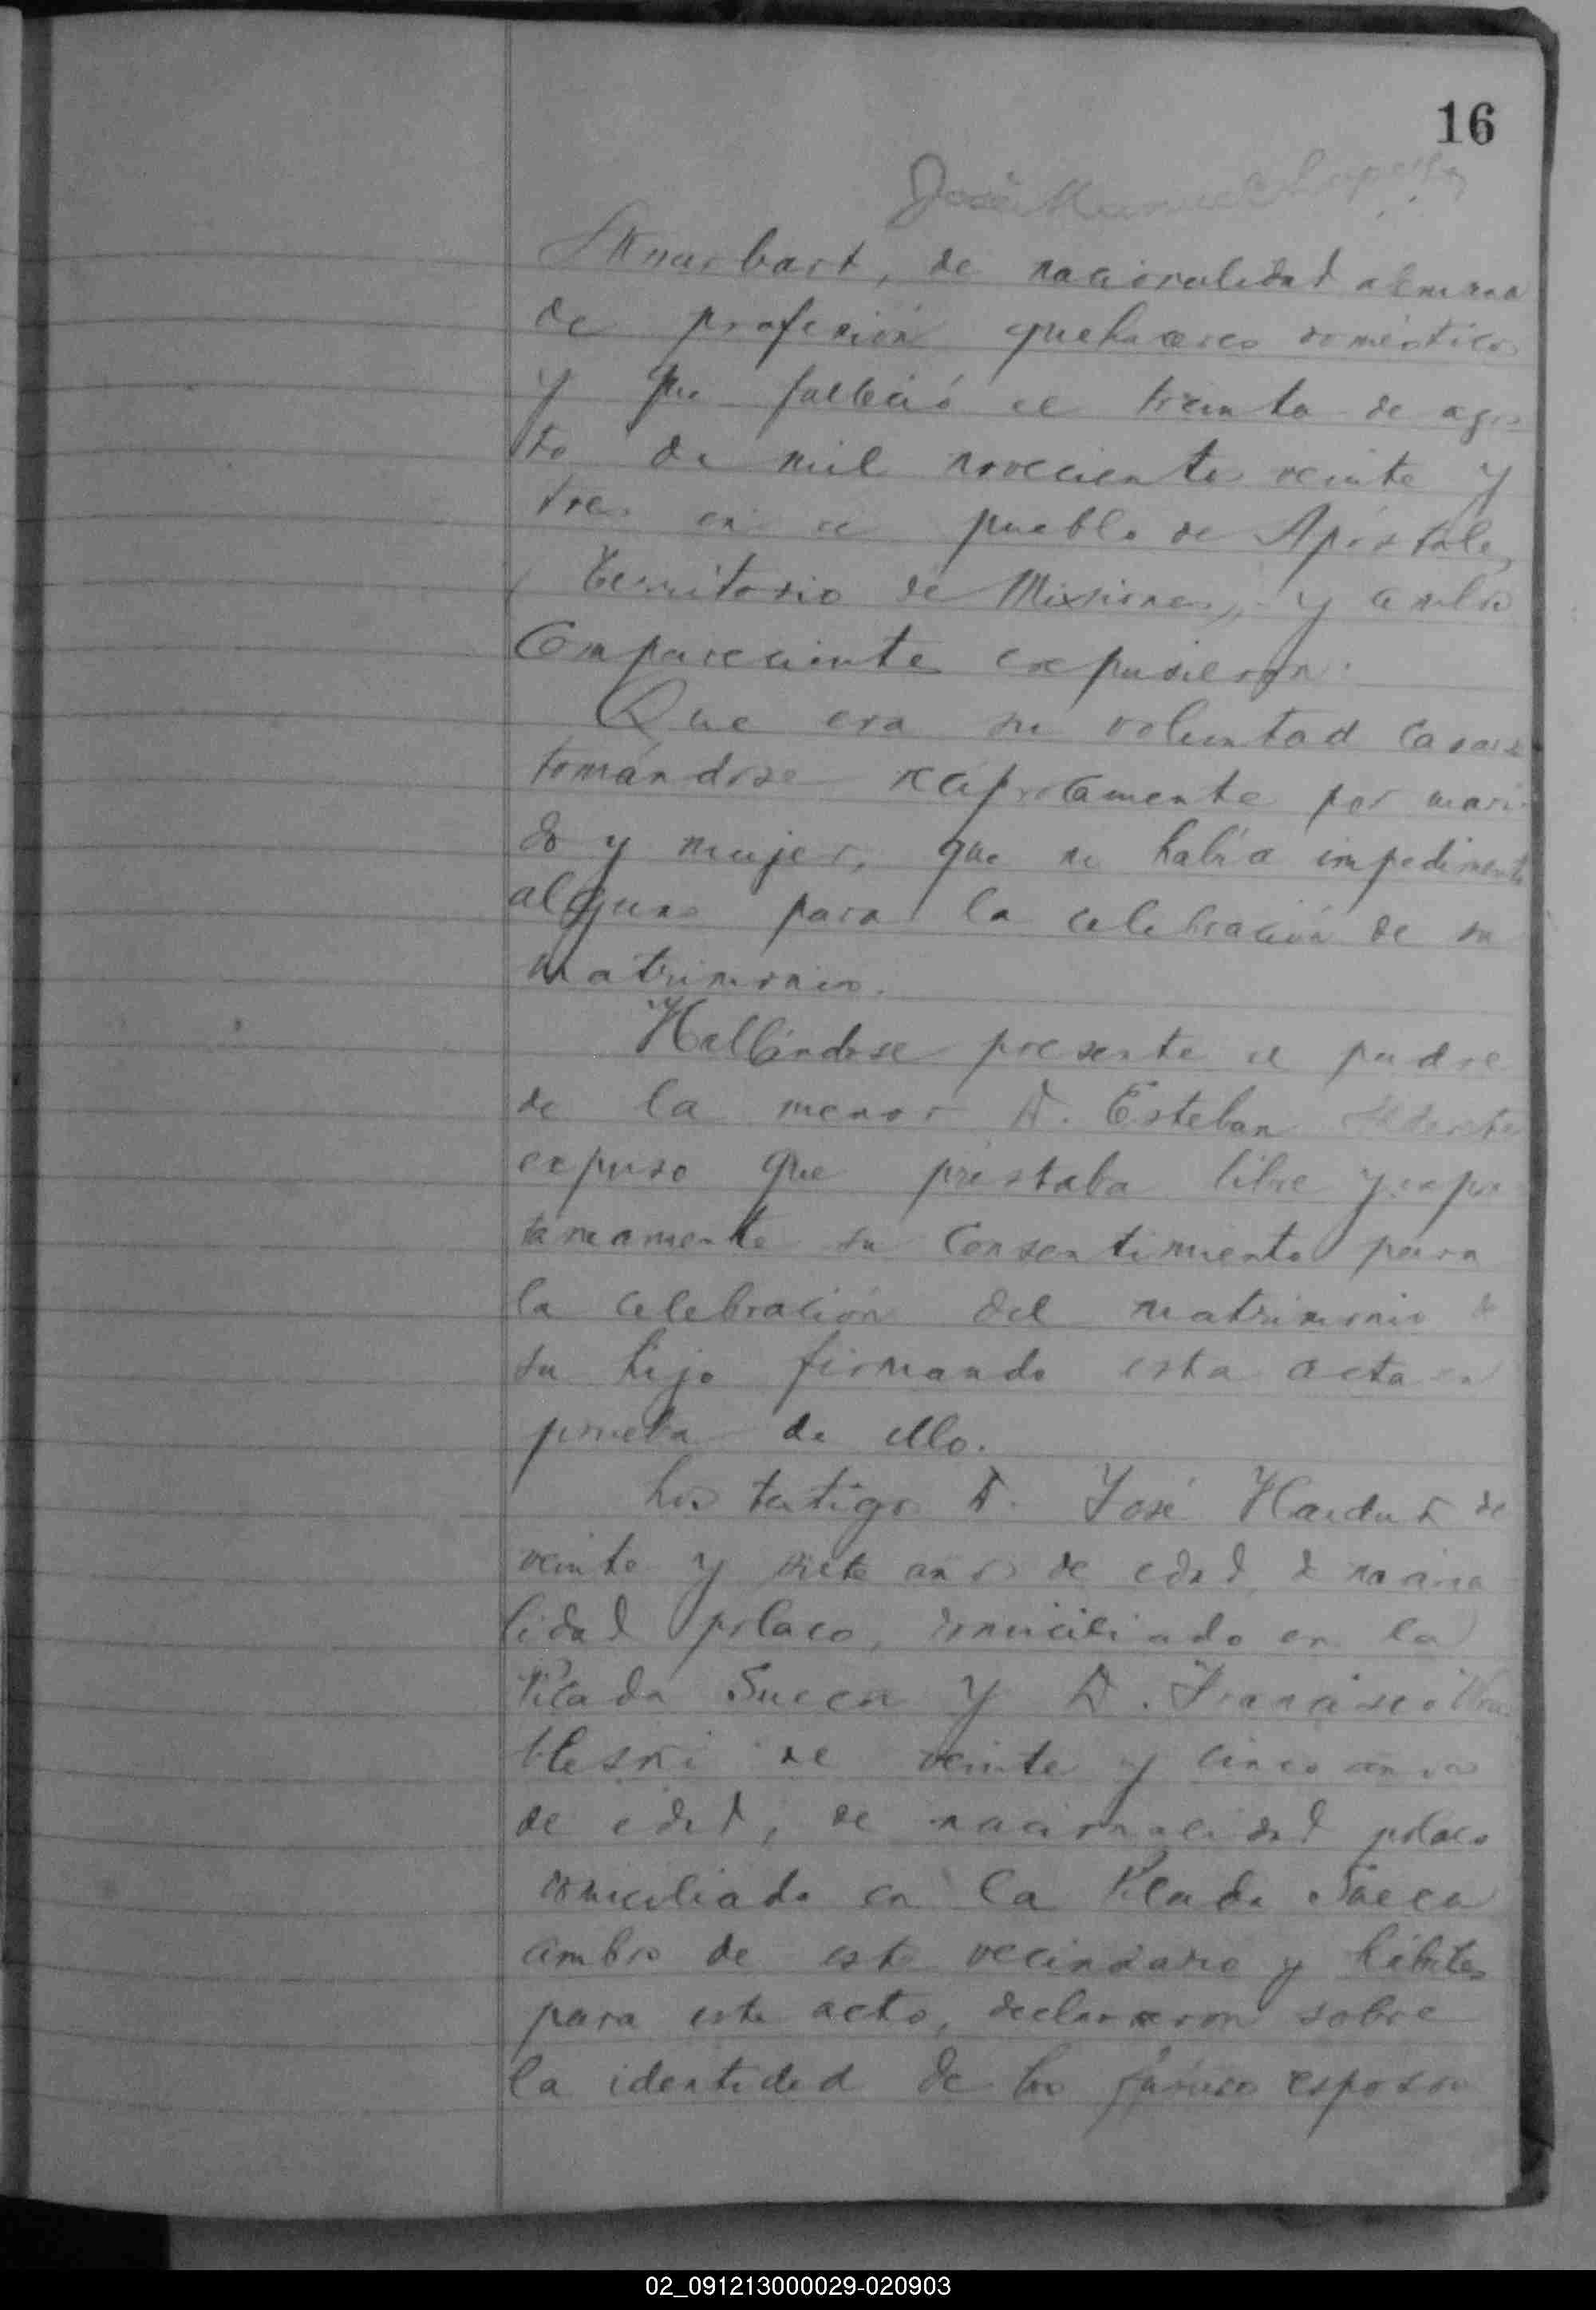 16
José Manuel
de nacionalidad alemana
de profesión quehaceres domésticos
y que falleció el treinta de agos
to de mil novecientos veinte y
tres en el pueblo de Apóstoles
(Territorio de Missiones), y ambos
comparecientes expusieron:
Que era su voluntad casarse
tomándose reciprocamente por mari
do y mujer, que no había impedimento
alguno para la celebración de su
matrimonio.
Hallándose presente el padre
de la menor D. Esteban
expuso que prestaba libre y espon
táneamente su consentimiento para
la celebración del matrimonio de
su hija firmando esta acta en
prueba de ello.
Los testigos D. José Hardut de
veinte y siete años de edad, de naciona
lidad polaco, domiciliado en la
Picada Sueca y D. Francisco
bleski de veinte y cinco años
de edad, de nacionalidad polaco
domiciliado en la Picada Sueca
ambos de este vecindario y hábiles
para este acto, declararon sobre
la identidad de los futuros esposos
02_091213000029-020903